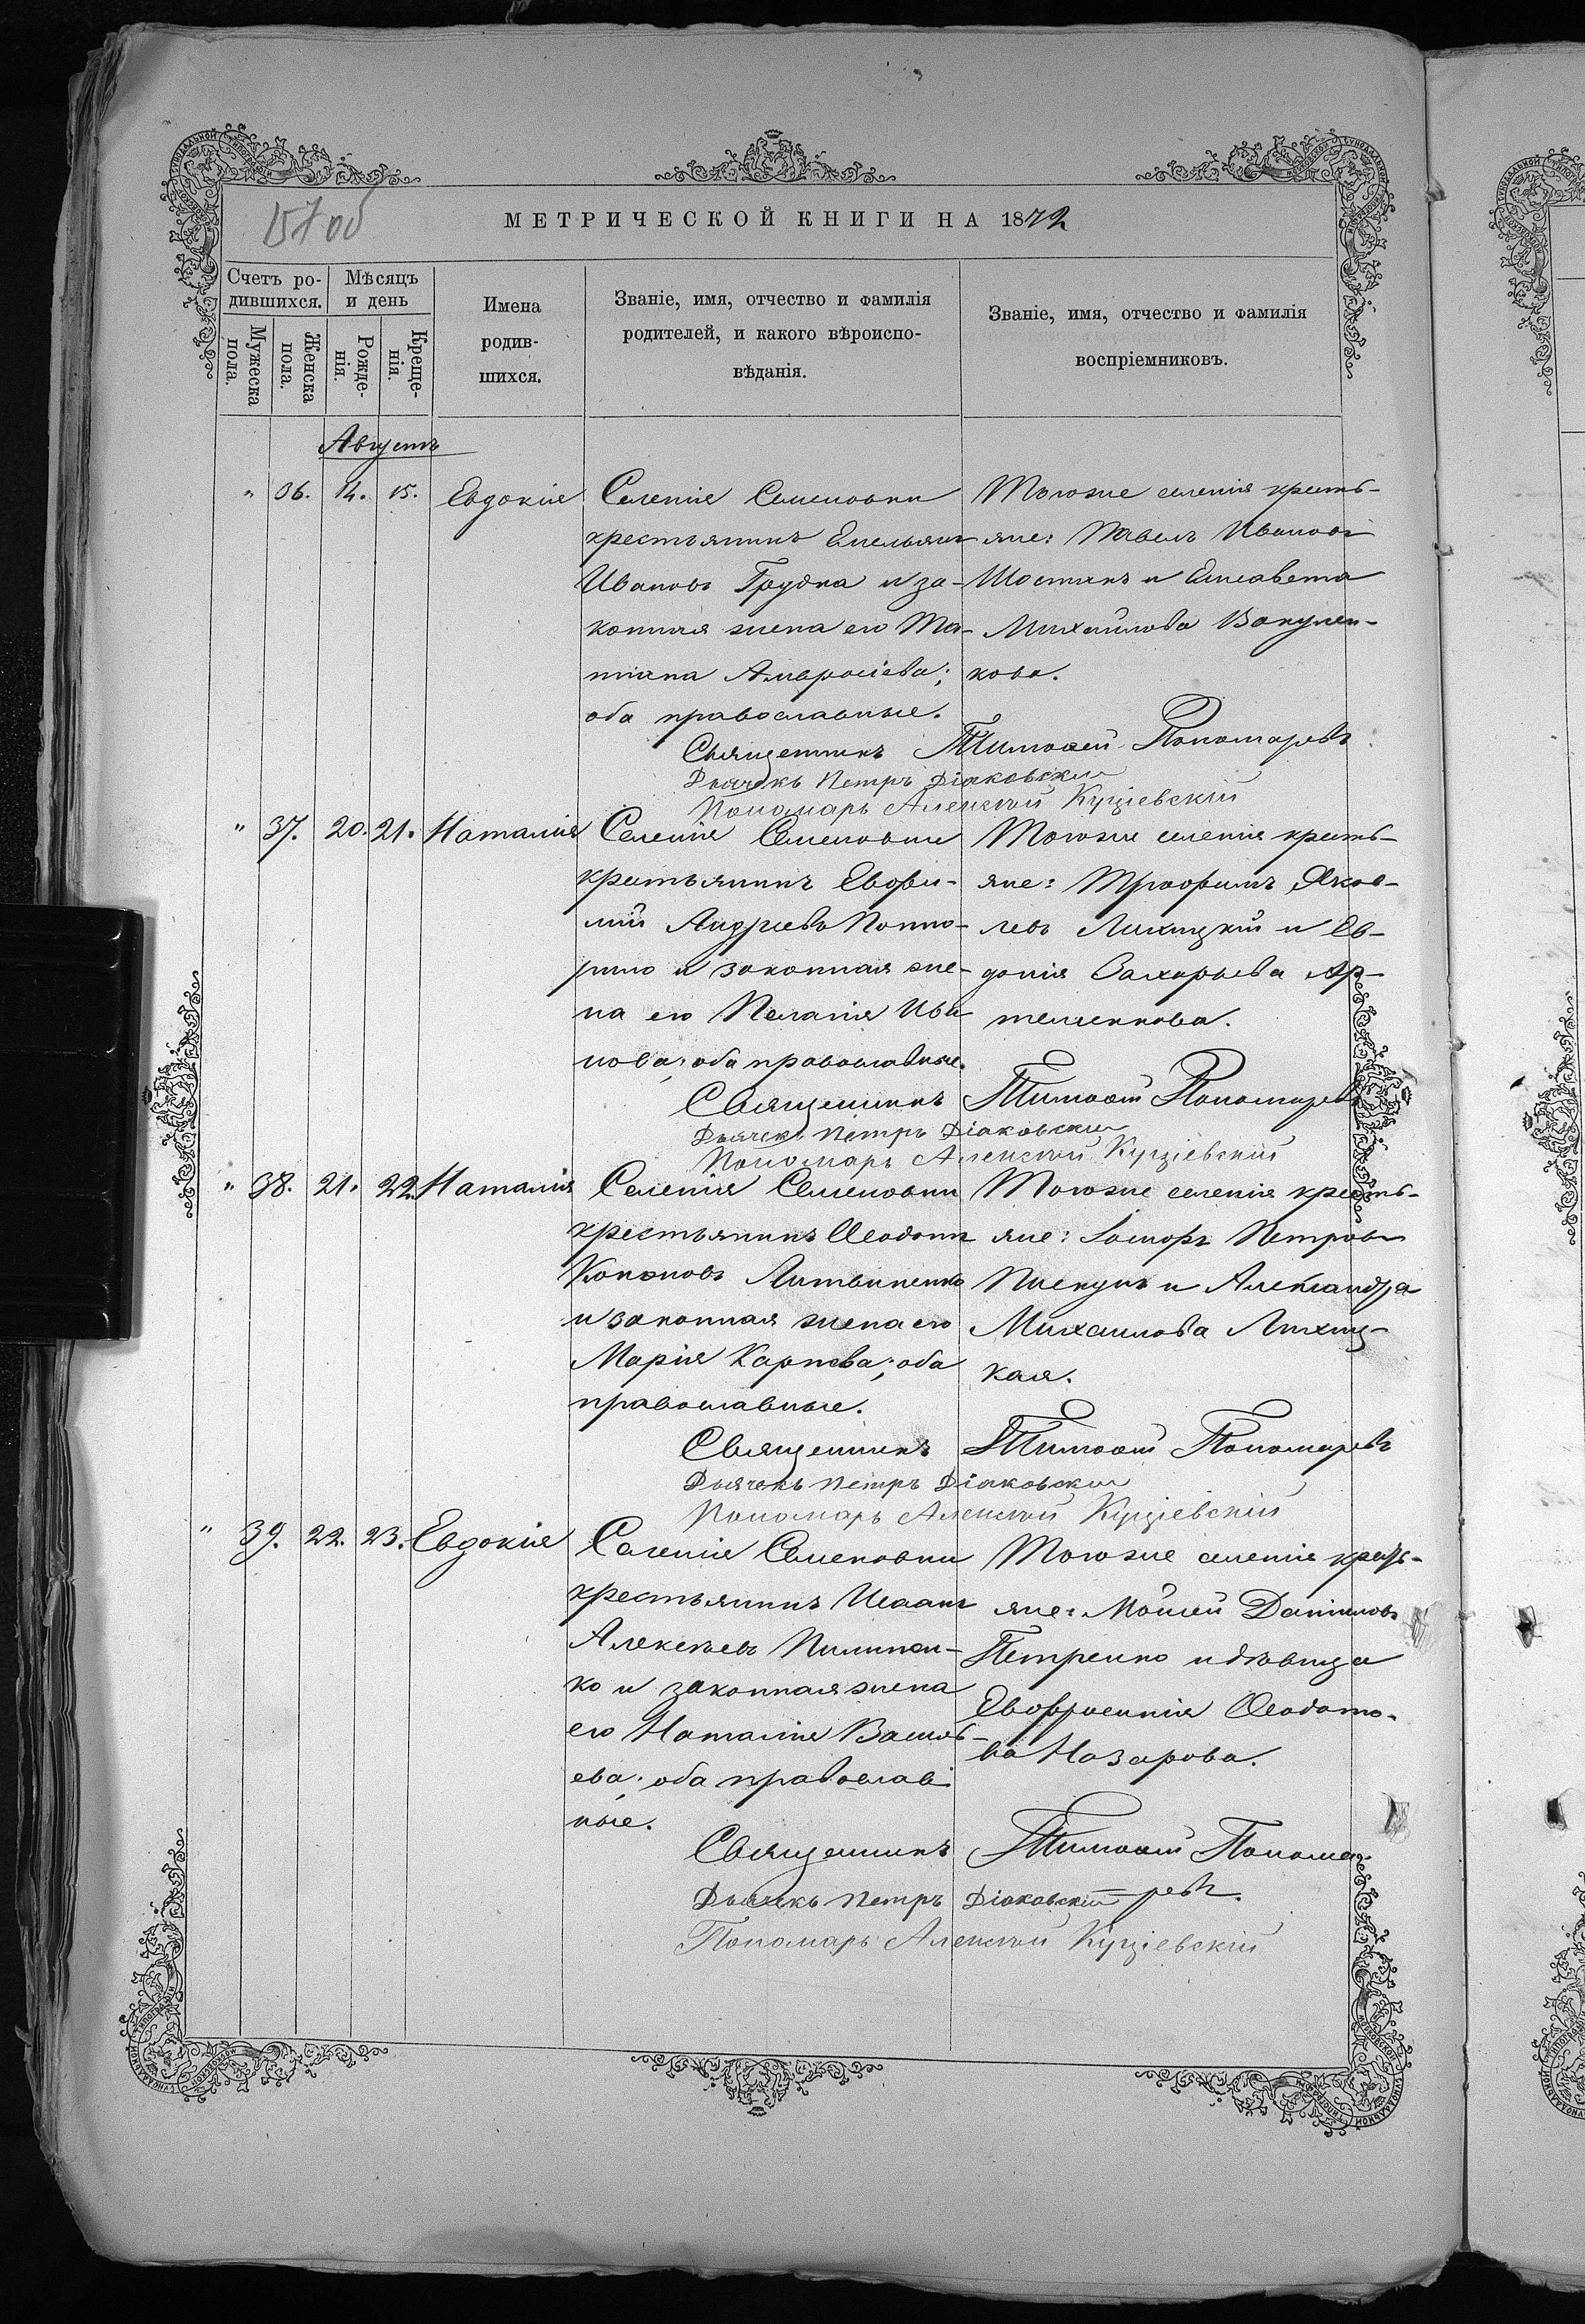 МЕТРИЧЕСКОЙ КНИГИ НА 1872
Счетъ ро-
дившихся.
Мѣсяцъ
и день
Мужеска
пола.
Женска
пола.
Рожде-
нія.
Креще-
нія.
Имена
родив-
шихся.
Званіе, имя, отчество и фамилія
родителей, и какого вѣроиспо-
вѣданія.
Званіе, имя, отчество и фамилія
воспріемниковъ.
Августъ
" 36. 14. 15. Евдокія
Селенія Семеновки
крестьянинъ Емельянъ
Ивановъ Грудка и за-
конная жена его Та-
тіана Амвросіева;
оба православные.
Тогоже селенія кресть-
яне: Павелъ Ивановъ
Шостакъ и Елисавета
Михаилова Вакулен-
кова.
Священникъ Тимоѳей Пономаревъ
Дьячекъ Петръ Діаковскій
Пономарь Алексѣй Кущіевскій
" 37. 20. 21. Наталия
Селенія Семеновки
крестьянинъ Евѳи-
мій Андреевъ
и законная же-
на его Пелагія Ива-
нова; оба православные.
Тогоже селенія кресть-
яне: Трофимъ Яков-
левъ Лихицкій и Ев-
докія Захарьева Ар-
темченкова.
Священникъ Тимоѳей Пономаревъ
Дьячекъ Петръ Діаковскій
Пономарь Алексѣй Кущіевскій
" 38. 21. 22. Наталія
Селенія Семеновки
крестьянинъ Ѳеодотъ
Кононовъ Литвиненко
и законная жена его
Марія Карпова; оба
православные.
Тогоже селенія кресть-
яне: Петровъ
Пискунъ и Александра
Михаилова Лихиц-
кая.
Священникъ Тимоѳей Пономаревъ
Дьячекъ Петръ Діаковскій
Пономарь Алексѣй Кущіевскій
" 39. 22. 23. Евдокія
Селенія Семеновки
крестьянинъ Исаакъ
Алексѣевъ Пилипен-
ко и законная жена
его Наталія Василь-
ева; оба православ-
ные.
Тогоже селенія кресть-
яне: Мойсей Даніиловъ
Петренко и дѣвица
Евфросинія Ѳеодото-
ва Назарова.
Священникъ Тимоѳей Понома-
ревъ.
Дьячекъ Петръ Діаковскій
Пономарь Алексѣй Кущіевскій